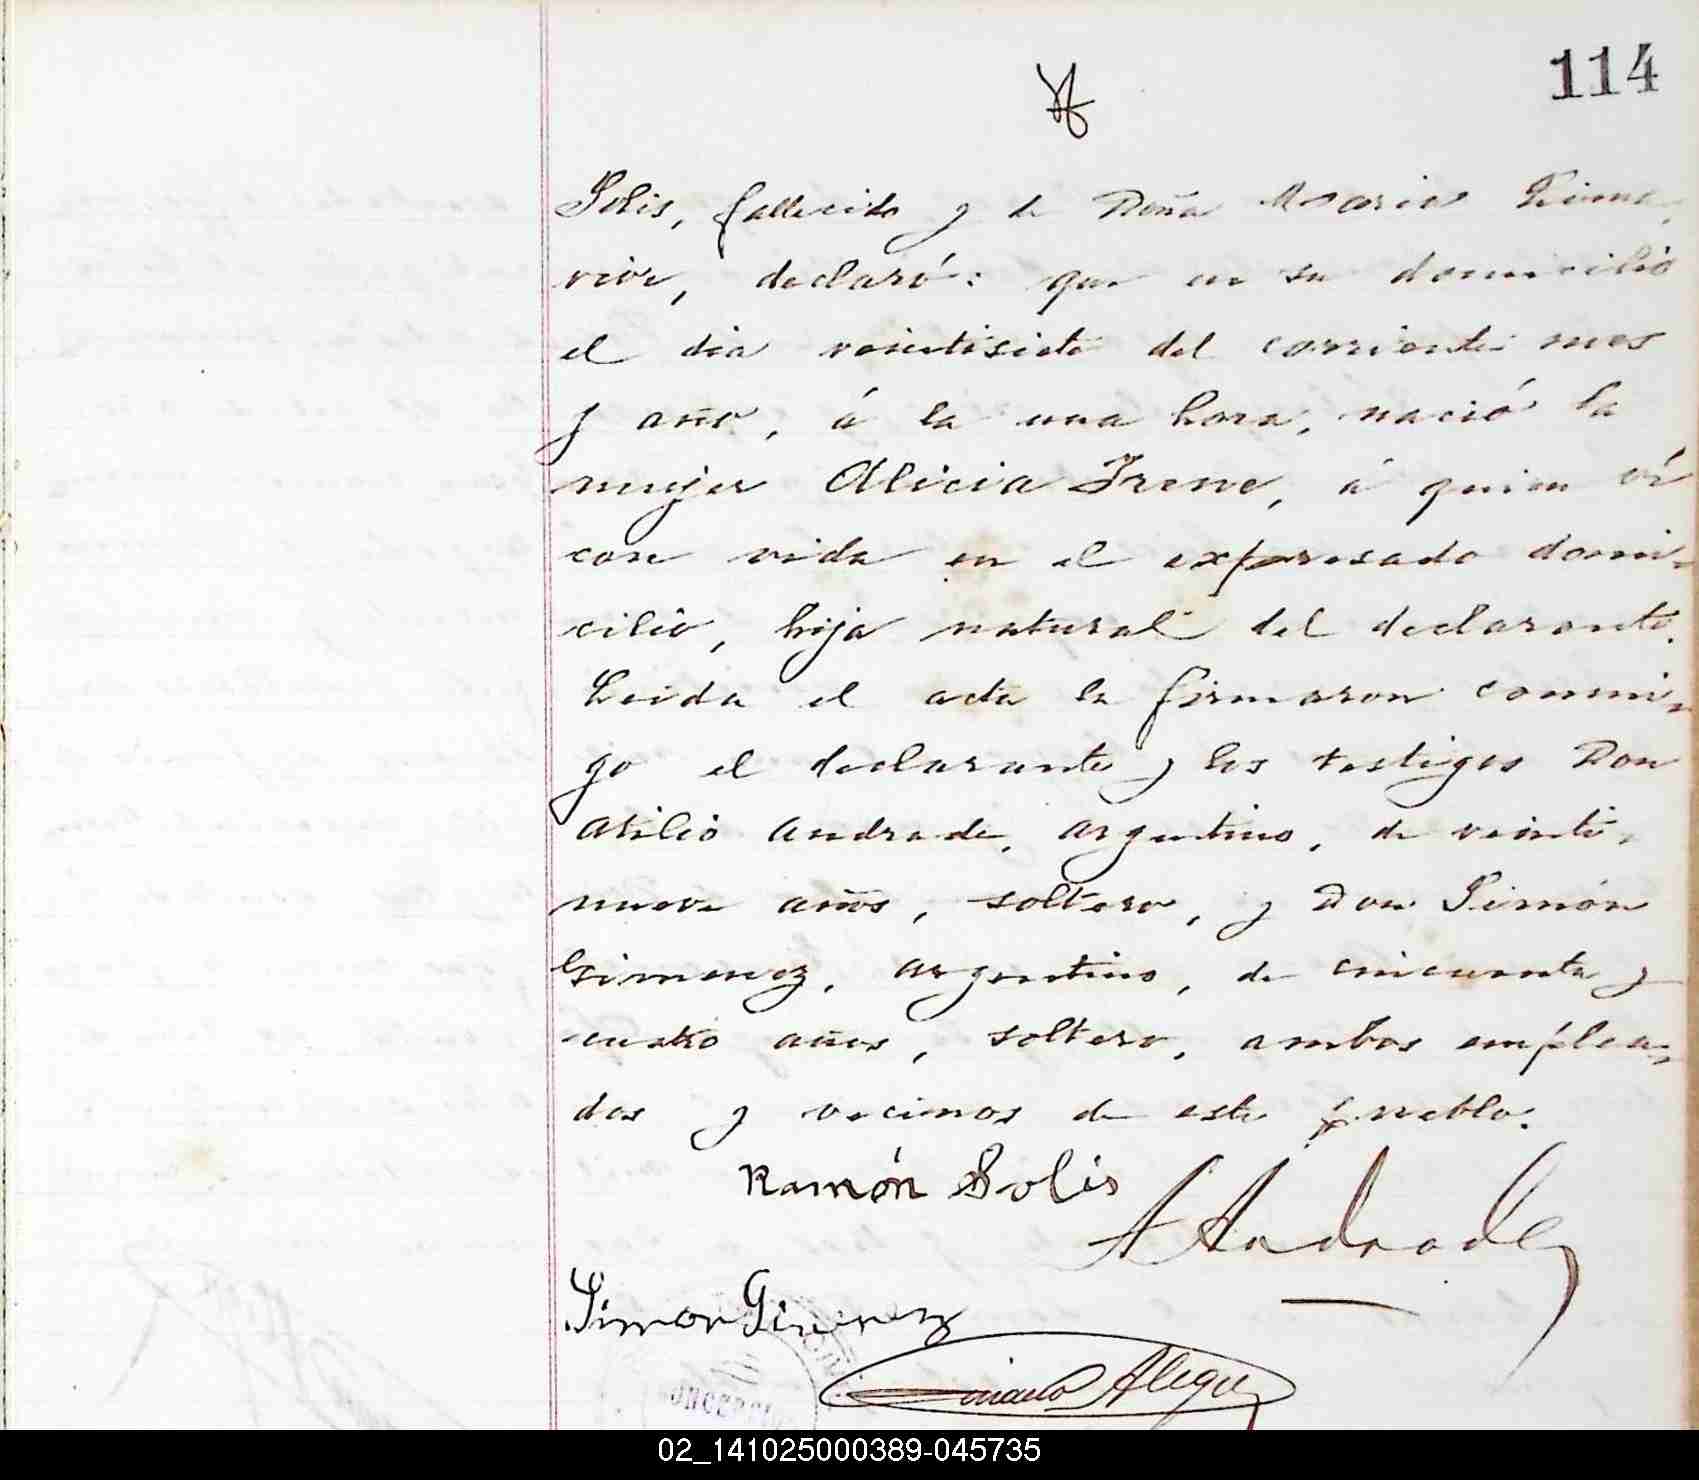 114
Solis, fallecido y de Doña Maria
vive, declaró: que en su domicilio
el dia veintisiete del corriente mes
y año, á la una hora, nació la
mujer Alicia Irene, á quien ví
con vida en el expresado domi-
cilio, hija natural del declarante.
Leida el acta la firmaron conmi-
go el declarante y los testigos Don
Atilio Andrade, argentino, de veinti-
nueve años, soltero, y Don Simón
Gimenez, argentino, de cincuenta y
cuatro años, soltero, ambos emplea-
dos y vecinos de este pueblo.
Ramón Solis
A Andrade
Simon Gimenez
Alegre
02_141025000389-045735